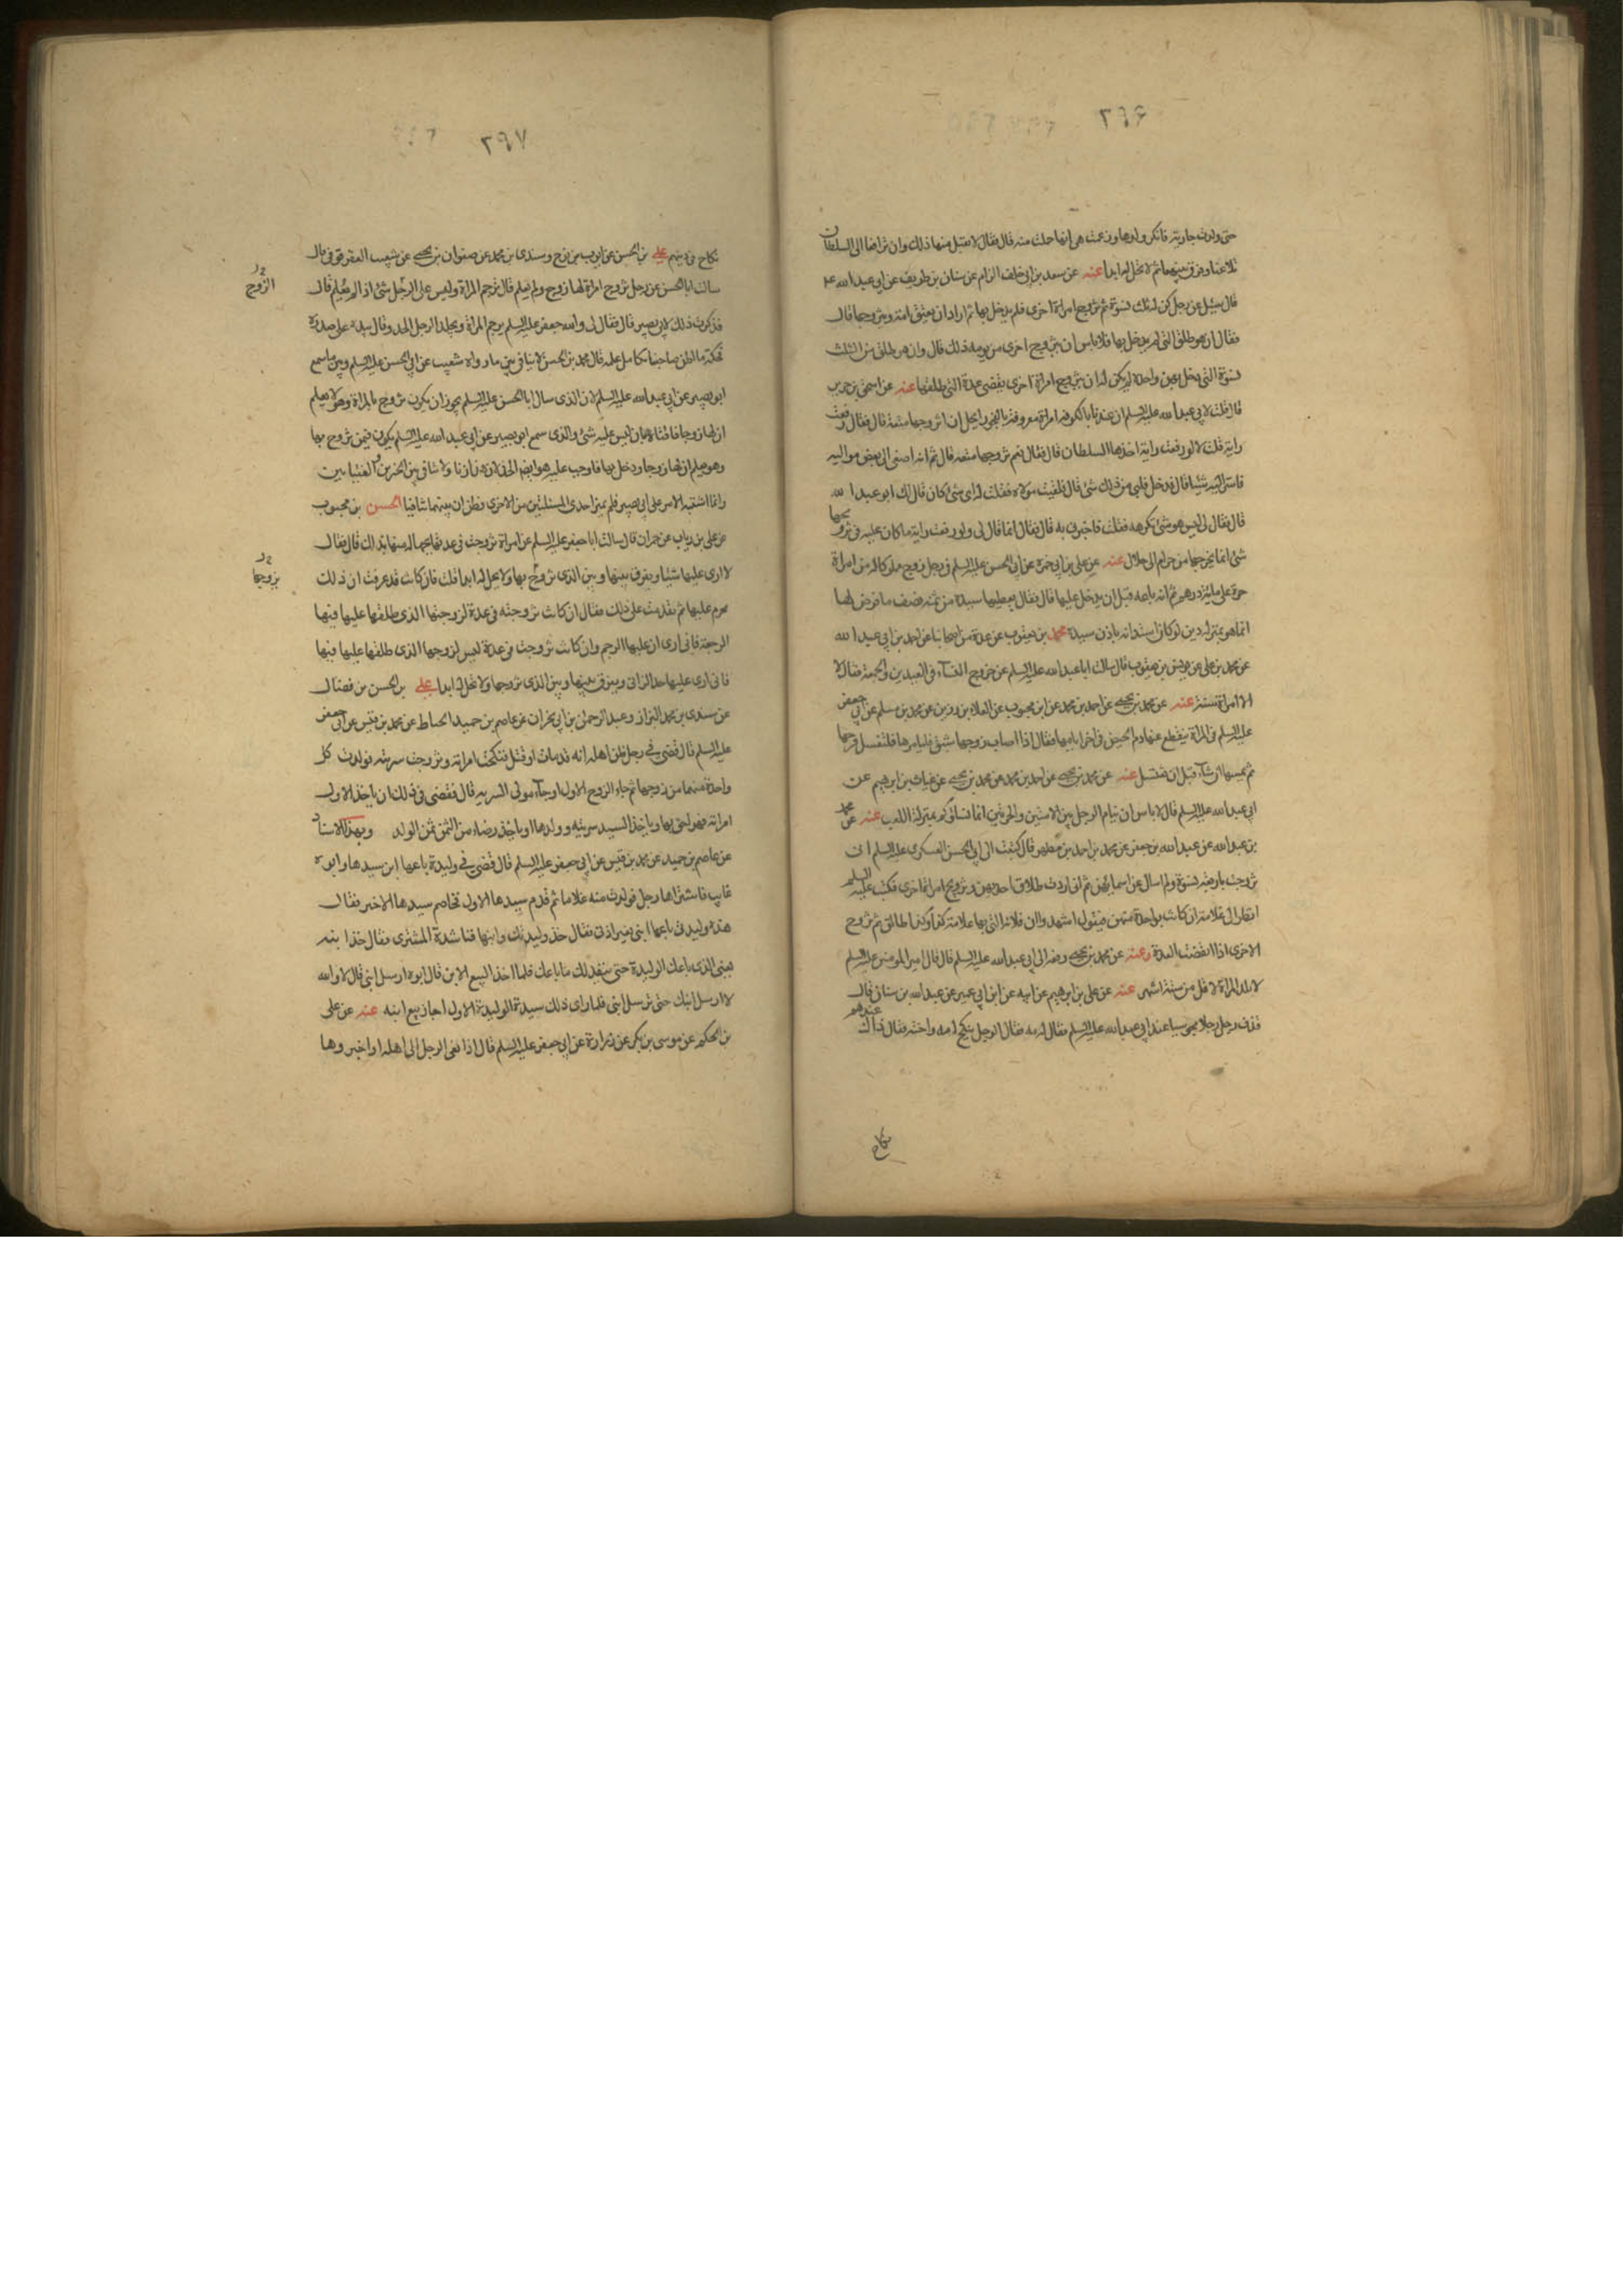 ٢٩۶
حتى ولدت جارية فانكر ولدها وزعمت هى انها حبلت منه قال فقال لا يقبل منها ذلك وان ترافعا الى السلطان
تلاعنا وفرق بينهما ثم لا تحل له ابدا عنه عن سعد بن ابى خلف الزام عن سنان بن طريف عن ابى عبد الله ع
قال سئل عن رجل كن له ثلث نسوة ثم تزوج امراة اخرى فلم يدخل بها ثم اراد ان يعتق امته ويتزوجها قال
فقال ان هو طلق التى لم يدخل بها فلا باس ان يتزوج اخرى من يومه ذلك قال وان هو طلق من الثلث
نسوة التى دخل بهن واحدة لم يكن له ان يتزوج امراة اخرى حتى تنقضى عدة التى طلقها عنه عن اسحق بن جرير
قال قلت لابى عبد الله عليه السلم ان عندنا بالكوفه امراة معروفة بالفجور ايحل ان اتزوجها متعة قال فقال رفعت
راية قلت لا لو رفعت راية اخذها السلطان قال فقال نعم تزوجها متعه قال ثم انه اصغى الى بعض مواليه
فاسر اليه شيئا قال فدخل قلبى من ذلك شئ قال فلقيت مولاه فقلت له اى شئ كان قال لك ابو عبد الله
قال فقال لى ليس هو شئ تكرهه فقلت فاخبرنى به قال فقال انما قال لى ولو رفعت راية ما كان عليه فى تزويجها
شئ انما يخرجها من حرام الى حلال عنه عن على بن ابى حمزة عن ابى الحسن عليه السلم فى رجل زوج مملوكا له من امراة
حرة على مائة درهم ثم انه باعه قبل ان يدخل عليها قال فقال يعطيها سيده من ثمنه نصف ما فرض لها
انما هو بمنزلة دين لو كان استدانه باذن سيده محمد بن يعقوب عن عدة من اصحابنا عن احمد بن ابى عبد الله
عن محمد بن على عن يونس بن يعقوب قال سالت ابا عبد الله عليه السلم عن خروج النساء فى العيدين والجمعة فقال لا
الا امراة مسنة عنه عن محمد بن يحيى عن احمد بن محمد عن ابن محبوب عن العلاء بن رزين عن محمد بن مسلم عن ابى جعفر
عليه السلم فى المراة ينقطع عنها دم الحيض فى اخر ايامها فقال اذا اصاب زوجها شبق فليامرها فلتغسل فرجها
ثم يمسها ان شاء قبل ان تغتسل عنه عن محمد بن يحيى عن احمد بن محمد عن محمد بن يحيى عن غياث بن ابرهيم عن
ابى عبد الله عليه السلم قال لا باس ان ينام الرجل بين الامتين والحرتين انما نساؤكم بمنزلة اللعب عنه عن محمد
بن عبد الله عن عبد الله بن جعفر عن محمد بن احمد بن مطهر قال كتبت الى ابى الحسن العسكرى عليه السلم انى
تزوجت باربعة نسوة ولم اسال عن اسمائهن ثم انى اردت طلاق احديهن وتزويج امراة اخرى فكتب عليه السلم
انظر الى علامة ان كانت بواحدة منهن فيقول اشهد وا ان فلانة التى بها علامة كذا وكذا طالق ثم تزوج
الاخرى اذا انقضت العدة وعنه عن محمد بن يحيى رفعه الى ابى عبد الله عليه السلم قال قال امير المومنين عليه السلم
لا تلد المراة لاقل من ستة اشهر عنه عن على بن ابرهيم عن ابيه عن ابن ابى عمير عن عبد الله بن سنان قال
قذف رجل رجلا مجوسيا عند ابى عبد الله عليه السلم فقال له مه فقال الرجل ينكح امه واخته فقال ذاك عندهم
نكاح
٢٩٧
نكاح فى دينهم على بن الحسن عن ايوب بن نوح وسندى بن محمد عن صفوان بن يحيى عن شعيب العقرقوفى قال
سالت ابا الحسن عن رجل تزوج امراة لها زوج ولم يعلم قال ترجم المراة وليس على الرجل شئ اذا لم يعلم قال
الزوج
فذكرت ذلك لابى بصير قال فقال لى والله جعفر عليه السلم ترجم المراة ويجلد الرجل الحد وقال بيده على صدره
فحكه ما اظن صاحبنا تكامل علمه قال محمد بن الحسن لا ينافى بين ما رواه شعيب عن ابى الحسن عليه السلم وبين ما سمع
ابو بصير عن ابى عبد الله عليه السلم لان الذى سال ابا الحسن عليه السلم يجوز ان يكون تزوج بالمراة وهو لا يعلم
ان لها زوجا فافتاه بان ليس عليه شئ والذى سمع ابو بصير عن ابى عبد الله عليه السلم يكون فيمن تزوج بها
وهو يعلم ان لها زوجا ودخل بها فاوجب عليه هو ايضا الحد لانه زان ولا تنافى بين الخبرين والفتيا بين
وانما اشتبه الامر على ابى بصير فلم يميز احدى المسئلتين من الاخرى فظن ان بينهما تنافيا الحسن بن محبوب
عن على بن رياب عن حمران قال سالت ابا جعفر عليه السلم عن امراة تزوجت فى عدتها بجهالة منها بذلك قال فقال
لا ارى عليها شيئا ويفرق بينها وبين الذى تزوج بها ولا يحل له ابدا قلت فان كانت قد عرفت ان ذلك
يزوجها
محرم عليها ثم تقدمت على ذلك فقال ان كانت تزوجته فى عدة لزوجها الذى طلقها عليها فيها
الرجعة فانى ارى ان عليها الرجم وان كانت تزوجت فى عدة ليس لزوجها الذى طلقها عليها فيها
فانى ارى عليها حد الزانى ويفرق بينها وبين الذى تزوجها ولا تحل له ابدا على بن الحسن بن فضال
عن سندى بن محمد البزاز وعبد الرحمن بن ابى نجران عن عاصم بن حميد الحناط عن محمد بن قيس عن ابى جعفر
عليه السلم قال قضى فى رجل ظن اهله انه قد مات او قتل فنكحت امراته وتزوجت سريته فولدت كل
واحدة منهما من زوجها ثم جاء الزوج الاول او جاء مولى السريه قال فقضى فى ذلك ان ياخذ الاول
امراته فهو احق بها وياخذ السيد سريته وولدها او ياخذ رضاء من الثمن ثمن الولد وبهذا الاسناد
عن عاصم بن حميد عن محمد بن قيس عن ابى جعفر عليه السلم قال قضى فى وليدة باعها ابن سيدها وابوه
غايب فاشتراها رجل فولدت منه غلاما ثم قدم سيدها الاول فخاصم سيدها الاخير فقال
هذه وليدتى باعها ابنى بغير اذنى فقال خذ وليدتك وابنها فناشده المشترى فقال خذ ابنه
يعنى الذى باعك الوليدة حتى ينفذ لك ما باعك فلما اخذ البيع الابن قال ابوه ارسل ابنى قال لا والله
لا ارسل ابنك حتى ترسل ابنى فلما راى ذلك سيد الوليدة الاول اجاز بيع ابنه عنه عن على
بن الحكم عن موسى بن بكر عن زرارة عن ابى جعفر عليه السلم قال اذا نعى الرجل الى اهله او اخبروها